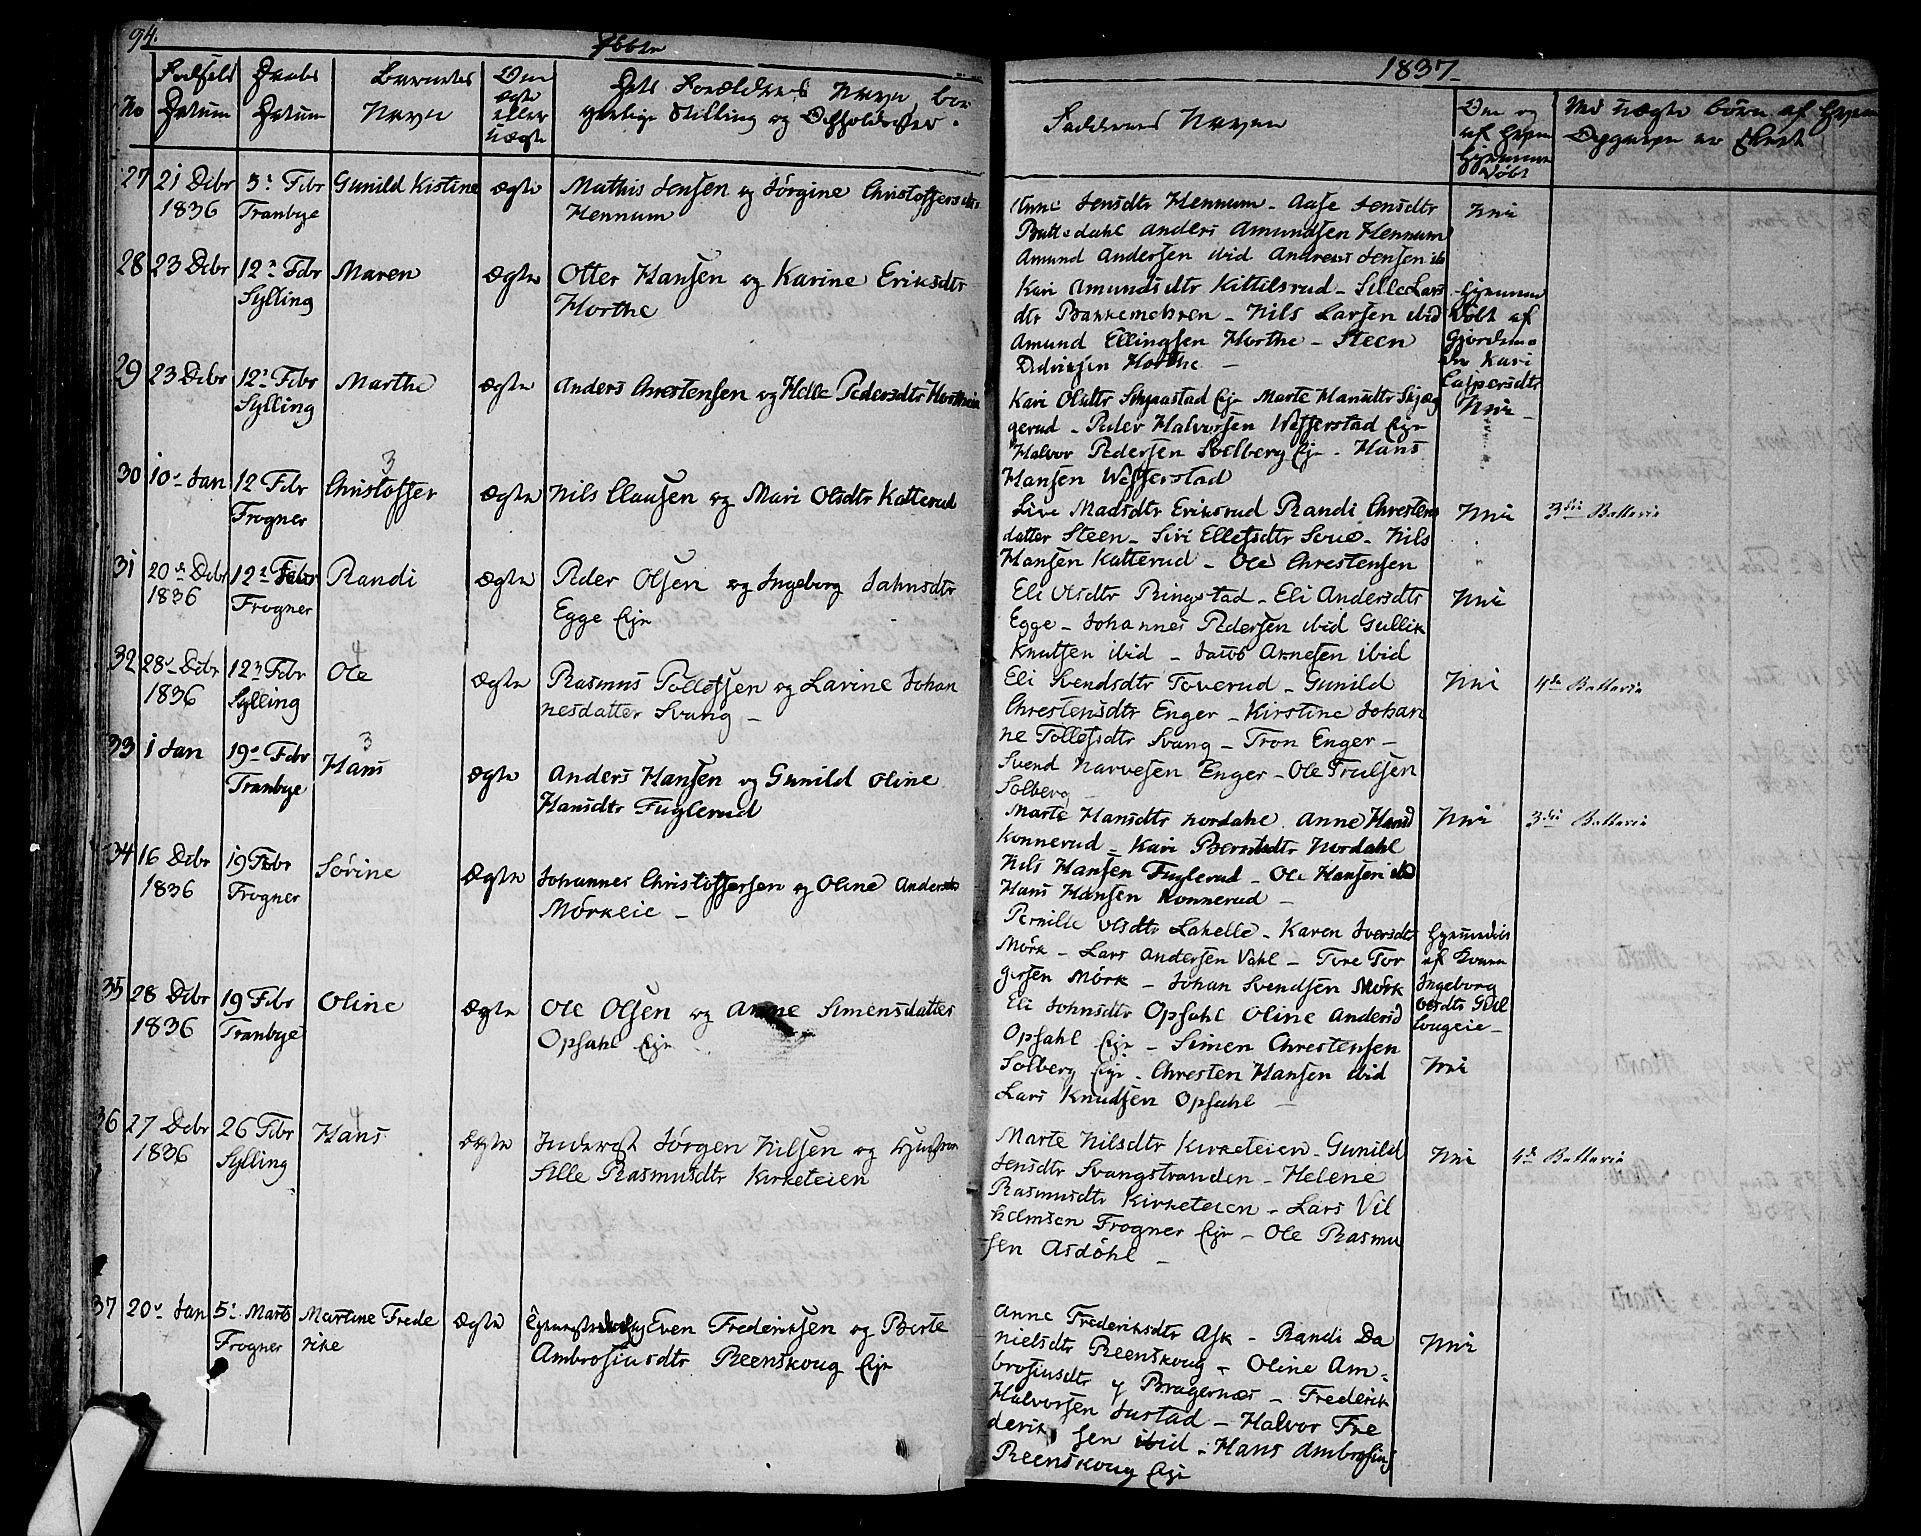 94.
Døbte
1837
No
Fødsels Datum
Daabs Datum
Barnets Navn
Om ægte eller uægte
Faddernes Navne
27 21 Dcbr 1836
5: Febr Tranbye
Gunild Kistine
Ægte
Mathis Jensen og Jørgine Christoffersdtr
Hennum
Anne Jensdtr Hennum - Aase Jensdtr
Buttedahl Anders Amundsen Hennum
Amund Andersen ibid Andreas Jensen ib
Nei
28 23 Dcbr
12: Febr Sylling
Maren
Ægte
Otter Hansen og Karine Eriksdtr
Horthe
Kari Amundsdtr Kittilsrud - Sille Lars
dtr Bakkemehren - Nils Larsen ibid
Amund Ellingsen Horthe - Steen
Didriksen Horthe -
Hjemme
døbt af
Gjordemo
der Kari
Caspersdtr
29 23 Dcbr
12: Febr Sylling
Marthe
Ægte
Anders Chrestensen og Helle Pedersdtr
Kari Olsdtr Schjaastad Eje Marte Hansdtr Skjæg
gerud - Peder Halvorsen Wefferstad Eje
Halvor Pedersen Solberg Eje - Hans
Hansen Wefferstad
Nei -
30 10 Jan
12 Febr Frogner
3
Christoffer
Ægte
Nils Clausen og Mari Olsdtr Katterud
Live Madsdtr Eriksrud Randi Chrestens
datter Steen - Siri Ellefsdtr - Nils
Hansen Katterud - Ole Chrestensen
Nei
3die Batterie
31 20 Dcbr 1836
12 Febr Frogner
Randi
Ægte
Peder Olsen og Ingeborg Jahnsdtr
Egge Eje
Eli Olsdtr Ringstad - Eli Andersdtr
Egge - Johannes Pedersen ibid Gullik
Knutsen ibid - Arnesen ibid
Nei
32 28 Dcbr 1836
12 Febr Sylling
4
Ole
Ægte
Rasmus Tollefsen og Lavine Johan
nesdatter Svang -
Eli Svendsdtr Toverud - Gunild
Chrestensdtr Enger - Kirstine Johan
ne Tollefsdtr Svang - Tron Enger -
Svend Narvesen Enger - Ole Trulsen
Solberg -
Nei
4de Batterie
33 1 Jan
19 Febr Tranbye
3
Hans
Ægte
Anders Hansen og Gunild Oline
Hansdtr Fuglerud
Marte Hansdtr Nordahl Anne Hansd
Konnerud - Kari Berntsdtr Nordahl
Nils Hansen Fuglerud - Ole Hansen ibid
Hans Hansen Konnerud -
Nei
3die Batterie
34 16 Dcbr 1836
19 Febr Frogner
Sørine
Ægte
Johannes Christoffersen og Oline Andersdtr
Mørkeie -
Pernille Olsdtr Lahelle - Karen Iversdtr
Mørk - Lars Andersen Vahl - Tore Tor
gersen Mørk - Johan Svendsen Mørk
Hjemmedøbt
af
Ingeborg
35 28 Dcbr 1836
19 Febr Tranbye
Oline
Ægte
Ole Olsen og Anne Simensdatter
Opsahl Eje
Eli Johnsdtr Opsahl Oline Andersd
Opsahl Eje - Simen Chrestensen
Solberg Eje - Chresten Hansen ibid
Lars Knudsen Opsahl -
Nei
36 27 Dcbr 1836
26 Febr Sylling
4
Hans
Ægte
Inderst Jørgen Nilsen og Hustru
Sille Rasmusdtr Kirketeien
Marte Nilsdtr Kirketeien - Gunild
Jensdtr Svangstranden - Helene
Rasmusdtr Kirketeien - Lars Vil
helmsen Frogner Eje - Ole Rasmu
sen Asdøhl -
Nei
4de Batterie
37 20 Jan
5: Marts Frogner
Martine Frede
rike
Ægte
Even Frederiksen og Berte
Ambrosiusdtr Reenskoug Eje
Anne Frederiksdtr Ask - Randi Da
nielsdtr Reenskoug - Oline Am
brosiusdtr Bragernæs - Frederik
Halvorsen Justad - Halvor Fre
deriksen ibid - Hans Ambrosius
Reenskoug Eje
Nei